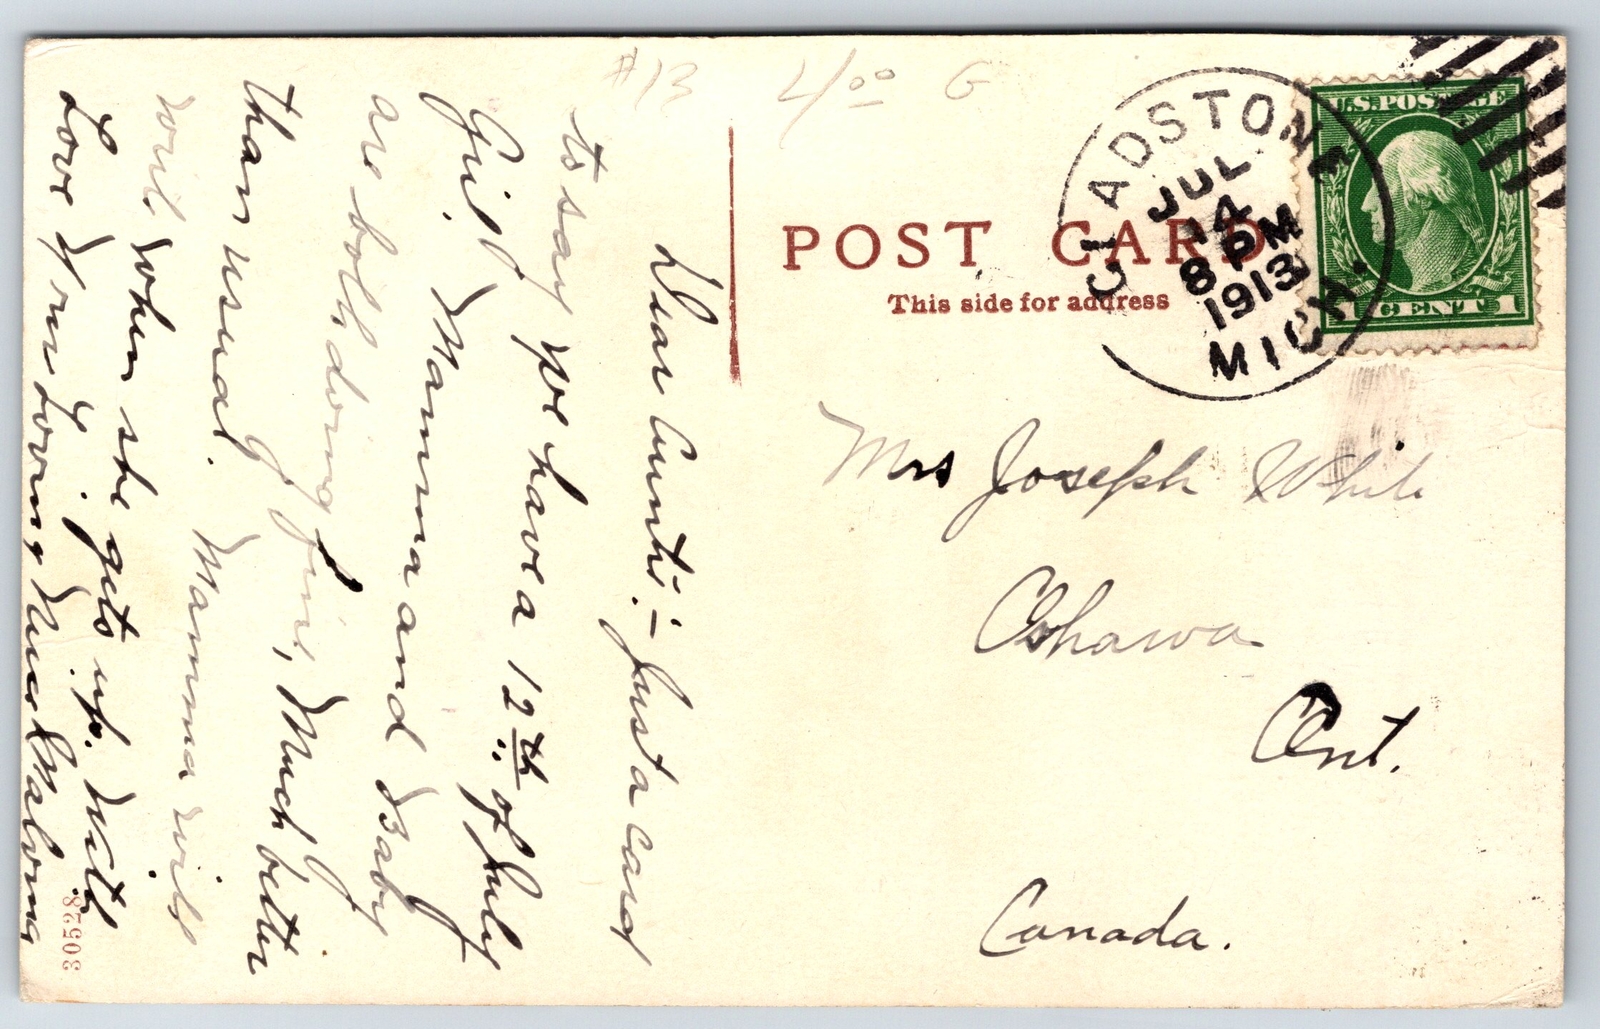 #13 4.00 G
GLADSTONE
JUL
14
8 PM
1913
MICH.
U.S. POSTAGE
1 CENT 1
POST CARD
This side for address
Mrs Joseph White
Oshawa
Ont.
Canada.
Dear Aunti:- Just a card
to say we have a 12th of July
Girl. Mamma and Baby
are both doing fine, Much better
than usual. Mamma will
writ when she gets up. With
Love Your Loving Niece Malvina
30528.